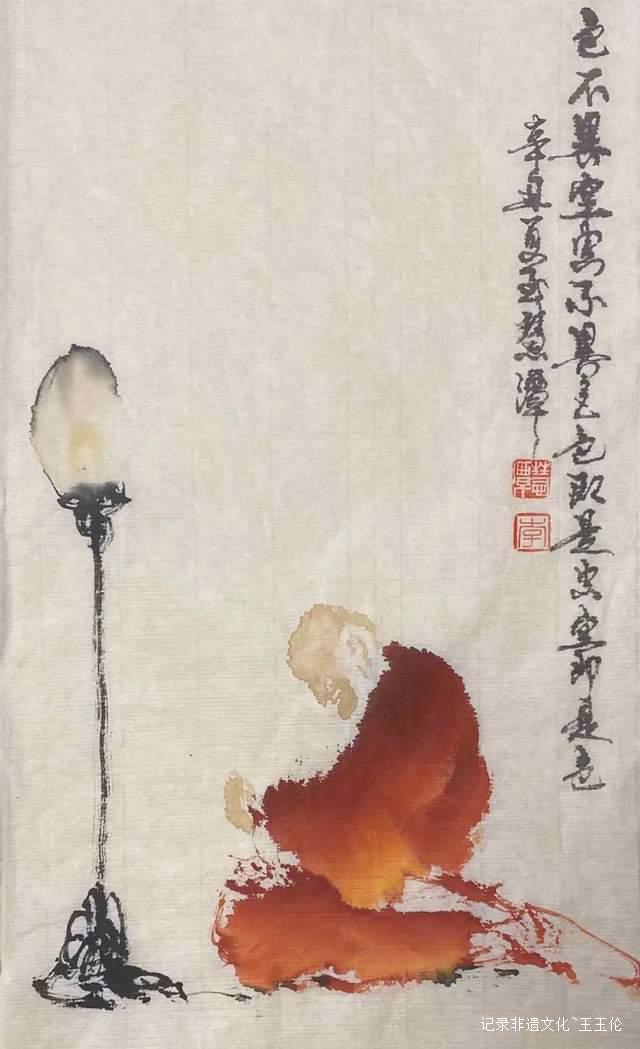 色不異空空不異色色即是空空即是色
辛丑夏至慧潭
慧潭
李
记录非遗文化~王玉伦